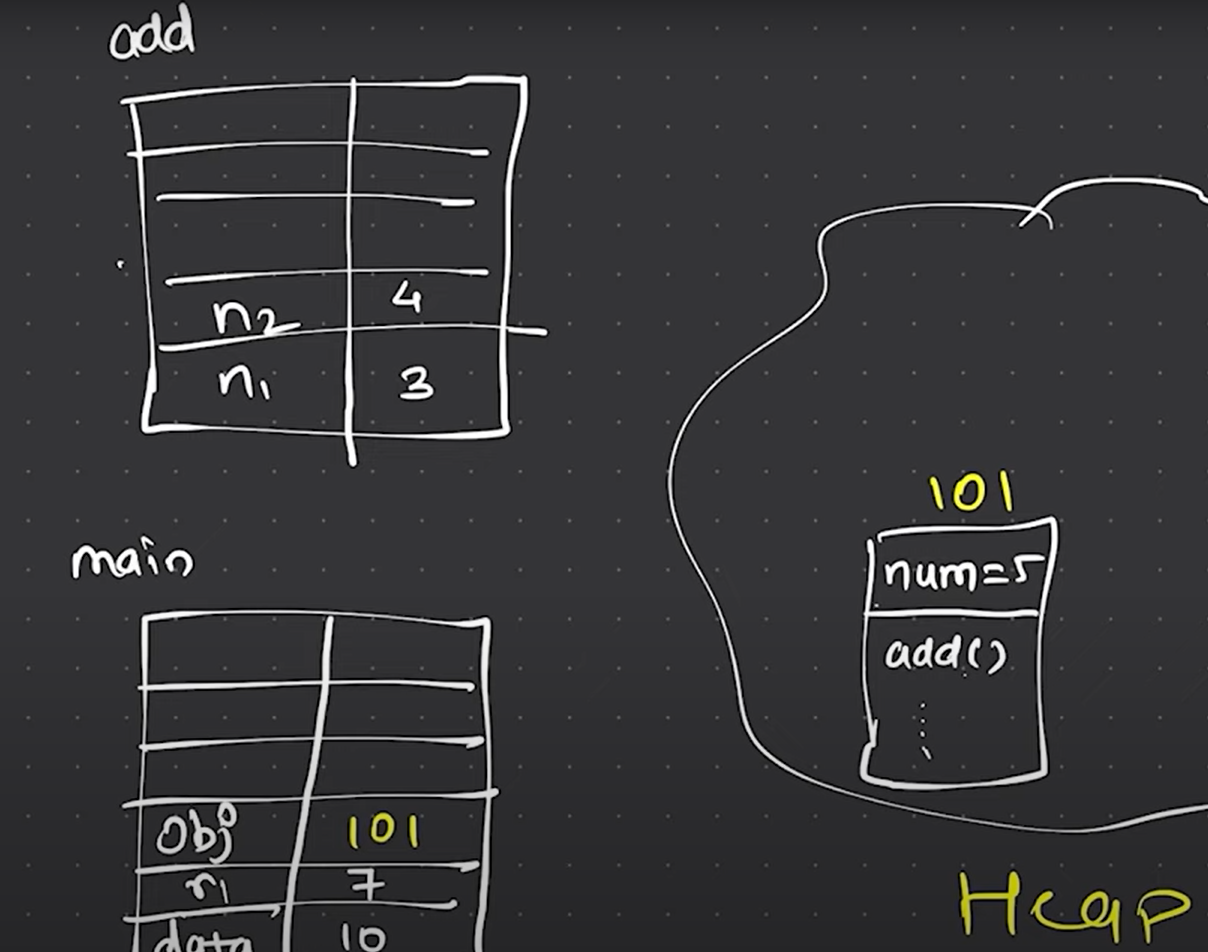 add
n2 4
n1 3
main
obj 101
r1 7
data 10
101
num=5
add()
Heap